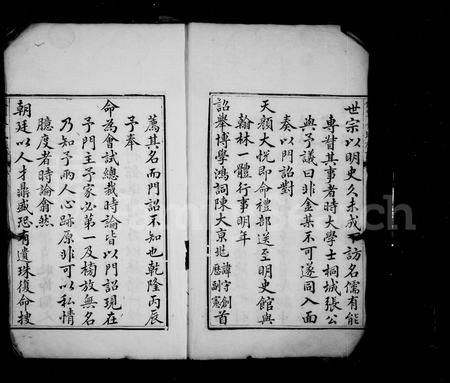 世宗以明史久未成下訪名儒有能
專其事者時大學士桐城張公
與予議曰非金某不可遂同入面
奏以門詔對
天顏大悅即命禮部送至明史館與
翰林一體行事明年
詔舉博學鴻詞陳大京兆諱守創歷副憲首
薦其名而門詔不知也乾隆丙辰
予奉
命為會試總裁時論皆以門詔現在
予門主予家必第一及榜放無名
乃知予兩人心跡原非可以私情
臆度者時論翕然
朝廷以人才鼎盛恐有遺珠復命搜